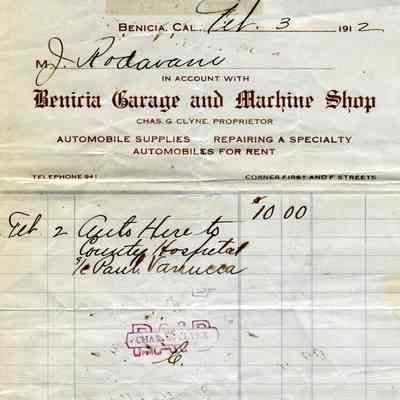 BENICIA, CAL. Feb. 3 1912
M J. Rodavani
IN ACCOUNT WITH
Benicia Garage and Machine Shop
CHAS. G. CLYNE, PROPRIETOR
AUTOMOBILE SUPPLIES REPAIRING A SPECIALTY
AUTOMOBILES FOR RENT
TELEPHONE 941 CORNER FIRST AND F STREETS
Feb 2 Auto Here to $10 00
County Hospital
a/c Paul Vanucca
PAID
CHAS. G. CLYNE
C.